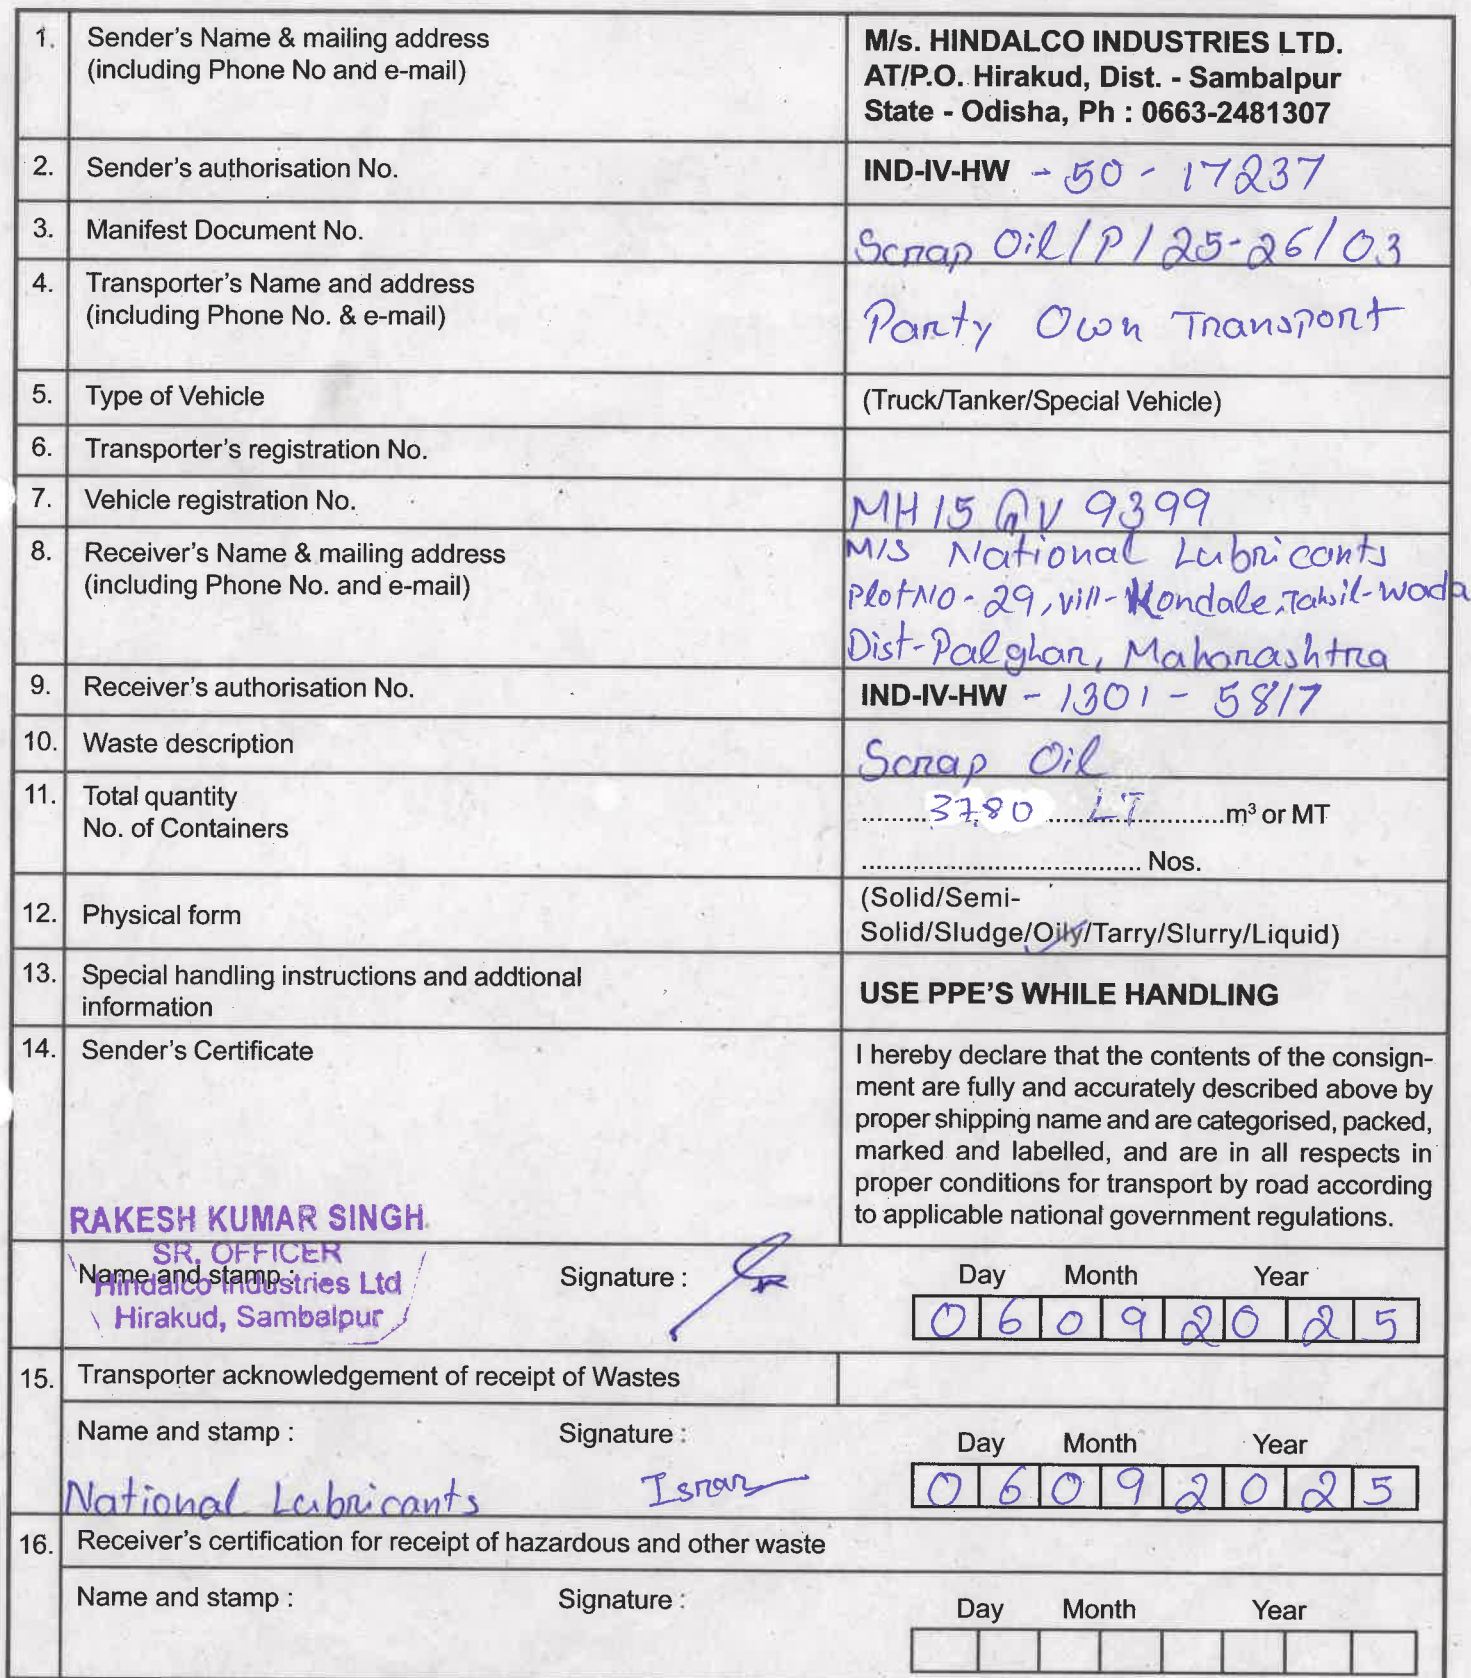 1. Sender's Name & mailing address
(including Phone No and e-mail)
M/s. HINDALCO INDUSTRIES LTD.
AT/P.O. Hirakud, Dist. - Sambalpur
State - Odisha, Ph : 0663-2481307
2. Sender's authorisation No.
IND-IV-HW - 50 - 17237
3. Manifest Document No.
Scrap Oil/P/25-26/03
4. Transporter's Name and address
(including Phone No. & e-mail)
Party Own Transport
5. Type of Vehicle
(Truck/Tanker/Special Vehicle)
6. Transporter's registration No.
7. Vehicle registration No.
MH 15 GV 9399
8. Receiver's Name & mailing address
(including Phone No. and e-mail)
M/S National Lubricants
Plot NO - 29, vill- Kondale, Tahsil-Wada
Dist-Palghar, Maharashtra
9. Receiver's authorisation No.
IND-IV-HW - 1301 - 5817
10. Waste description
Scrap Oil
11. Total quantity
No. of Containers
.........3780.....LT............m³ or MT
.................................... Nos.
12. Physical form
(Solid/Semi-
Solid/Sludge/Oily/Tarry/Slurry/Liquid)
13. Special handling instructions and addtional
information
USE PPE'S WHILE HANDLING
14. Sender's Certificate
I hereby declare that the contents of the consign-
ment are fully and accurately described above by
proper shipping name and are categorised, packed,
marked and labelled, and are in all respects in
proper conditions for transport by road according
to applicable national government regulations.
RAKESH KUMAR SINGH
SR. OFFICER
Hindalco Industries Ltd
Hirakud, Sambalpur
Name and stamp :
Signature :
Day Month Year
0 6 0 9 2 0 2 5
15. Transporter acknowledgement of receipt of Wastes
Name and stamp :
Signature :
Day Month Year
National Lubricants
Israr
0 6 0 9 2 0 2 5
16. Receiver's certification for receipt of hazardous and other waste
Name and stamp :
Signature :
Day Month Year